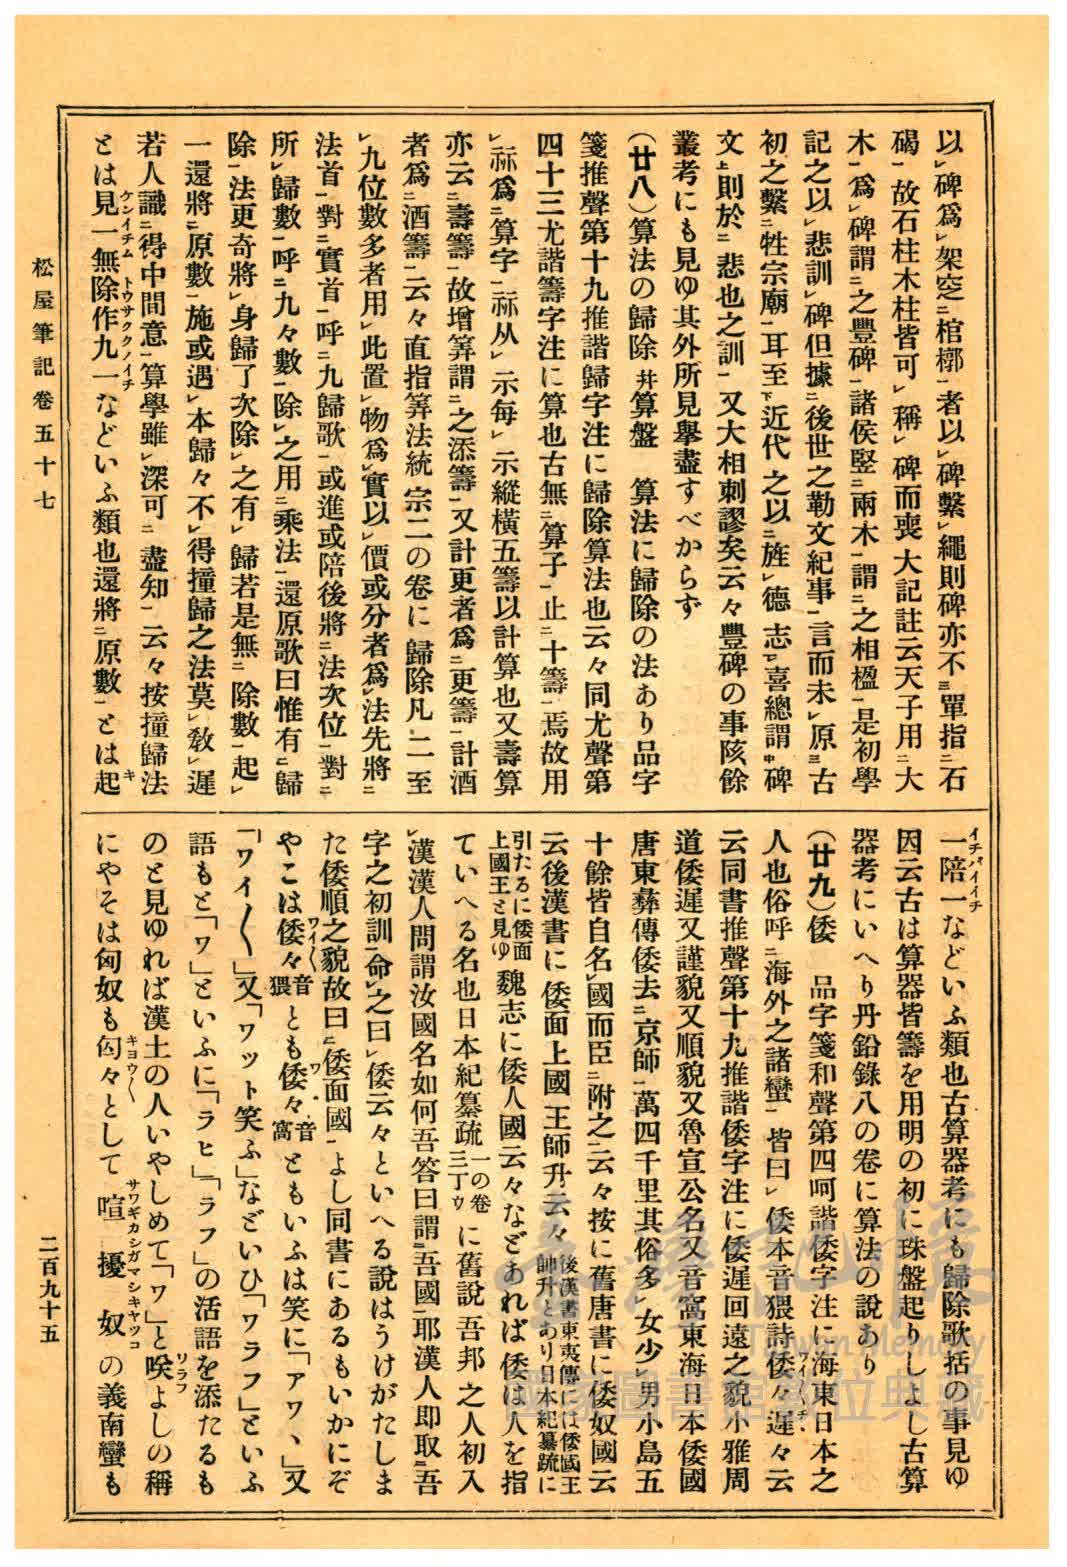 以レ碑爲レ架空ニ棺槨一者以レ碑繫レ繩則碑亦不三單指ニ石
碣一故石柱木柱皆可レ稱レ碑而喪大記註云天子用ニ大
木一爲レ碑謂ニ之豐碑一諸侯竪ニ兩木一謂ニ之相楹一是初學
記之以レ悲訓レ碑但據ニ後世之勒文紀事一言而未レ原三古
初之繫ニ牲宗廟一耳至下近代之以ニ旌レ德志一レ喜總謂中碑
文上則於ニ悲也之訓一又大相刺謬矣云々豐碑の事陔餘
叢考にも見ゆ其外所見擧盡すべからず
(廿八)算法の歸除幷算盤 算法に歸除の法あり品字
箋推聲第十九推諧歸字注に歸除算法也云々同尤聲第
四十三尤諧籌字注に算也古無ニ算子一止ニ十籌一焉故用
レ祘爲ニ算字一祘从レ示每レ示縱橫五籌以計算也又壽算
亦云ニ壽籌一故增筭謂ニ之添籌一又計更者爲ニ更籌一計酒
者爲ニ酒籌一云々直指筭法統宗二の卷に歸除凡二至
レ九位數多者用レ此置レ物爲レ實以レ價或分者爲レ法先將ニ
法首一對ニ實首一呼ニ九歸歌一或進或陪後將ニ法次位一對ニ
所レ歸數一呼ニ九々數一除レ之用ニ乘法一還原歌曰惟有ニ歸
除一法更奇將レ身歸了次除レ之有レ歸若是無ニ除數一起レ
一還將ニ原數一施或遇レ本歸々不レ得撞歸之法莫レ敎レ遲
若人識ニ得中間意一算學雖レ深可ニ盡知一云々按撞歸法
とは見一無除作九一などいふ類也還將ニ原數一とは起
ケンイチム トウサククノイチ
キ
一陪一などいふ類也古算器考にも歸除歌括の事見ゆ
イチバイイチ
因云古は算器皆籌を用明の初に珠盤起りしよし古算
器考にいへり丹鉛錄八の卷に算法の說あり
(廿九)倭 品字箋和聲第四呵諧倭字注に海東日本之
人也俗呼ニ海外之諸蠻一皆曰レ倭本音猥詩倭々遲々云
云同書推聲第十九推諧倭字注に倭遲回遠之貌小雅周
道倭遲又謹貌又順貌又魯宣公名又音窩東海日本倭國
唐東彝傳倭去ニ京師一萬四千里其俗多レ女少レ男小島五
十餘皆自名レ國而臣ニ附之一云々按に舊唐書に倭奴國云
云後漢書に倭面上國王師升云々後漢書東夷傳には倭國王帥升とあり日本紀纂疏に
引たるに倭面上國王と見ゆ魏志に倭人國云々などあれば倭は人を指
ていへる名也日本紀纂疏一の卷三丁ウに舊說吾邦之人初入
レ漢漢人問謂汝國名如何吾答曰謂ニ吾國一耶漢人即取ニ吾
字之初訓一命レ之曰レ倭云々といへる說はうけがたしま
た倭順之貌故曰ニ倭面國一よし同書にあるもいかにぞ
やこは倭々音猥とも倭々音窩ともいふは笑に「アワヽ」又
ワイ〱 ワ
「ワイ〱」又「ワット笑ふ」などいひ「ワラフ」といふ
語もと「ワ」といふに「ラヒ」「ラフ」の活語を添たるも
のと見ゆれば漢土の人いやしめて「ワ」と唉よしの稱
ワラフ
にやそは匈奴も匈々として喧擾奴の義南蠻も
キヨウ〱 サワギカシガマシキヤツコ
松屋筆記卷五十七
二百九十五
臺灣記憶
Taiwan Memory
國家圖書館數位典藏